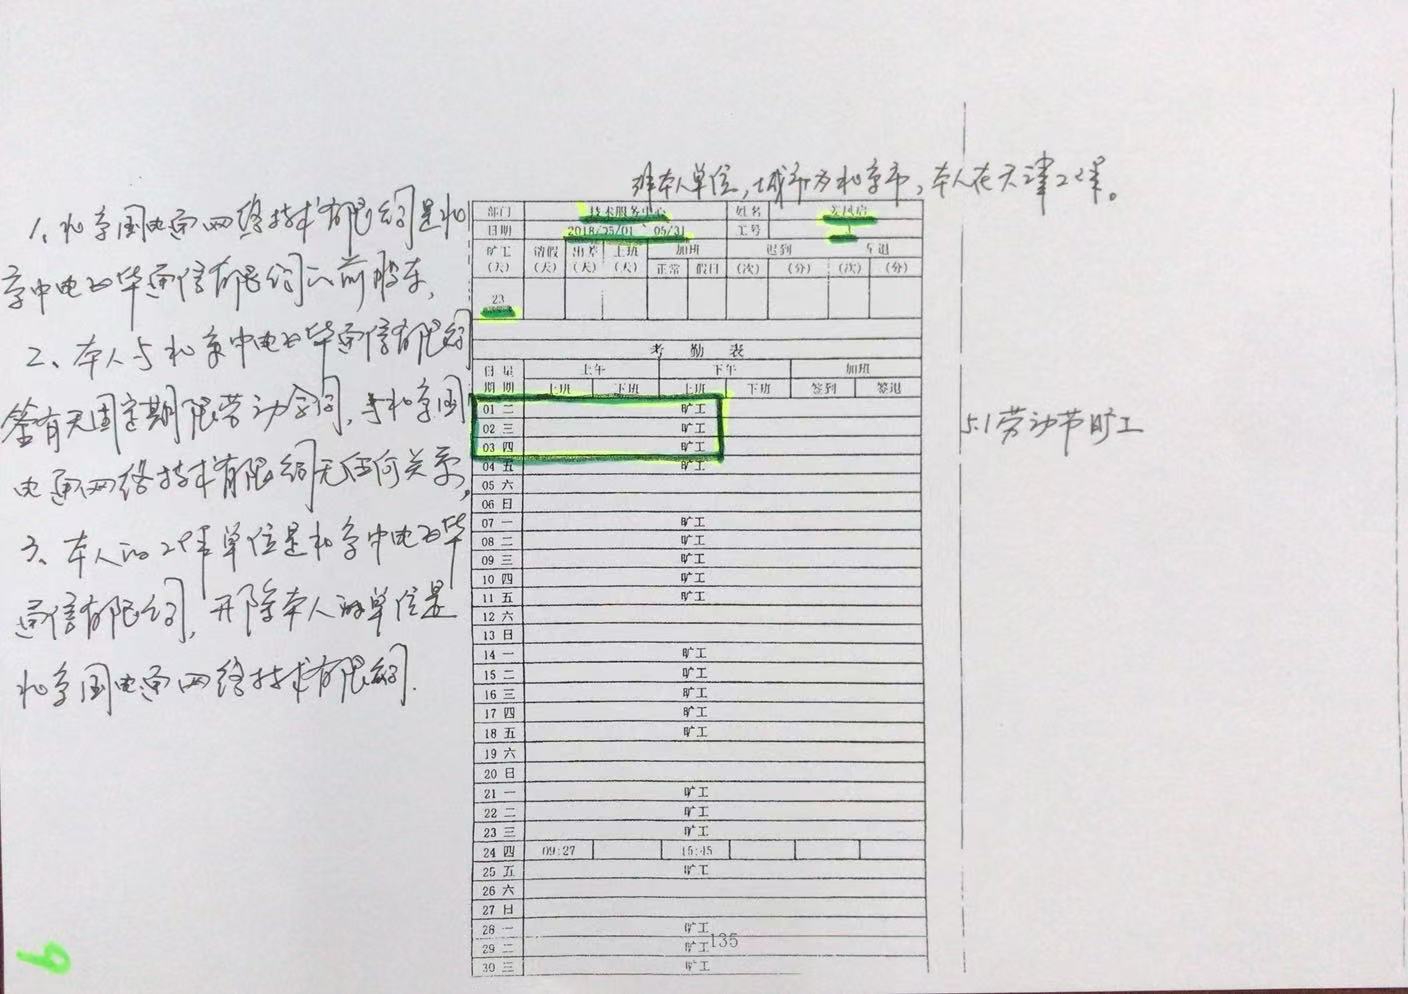 非本人单位,城市为北京市,本人在天津工作。
1、北京国电通网络技术有限公司是北
京中电飞华通信有限公司的前股东,
2、本人与北京中电飞华通信有限公司
签有无固定期限劳动合同,与北京国
电通网络技术有限公司无任何关系,
3、本人的工作单位是北京中电飞华
通信有限公司,开除本人的单位是
北京国电通网络技术有限公司.
部门 技术服务中心 姓名
日期 2018/05/01 ~ 05/31 工号 1
旷工 请假 出差 上班 加班 迟到 早退
(天) (天) (天) (天) 正常 假日 (次) (分) (次) (分)
23
考 勤 表
日 星 上午 下午 加班
期 期 上班 下班 上班 下班 签到 签退
01 二 旷工
5.1劳动节旷工
02 三 旷工
03 四 旷工
04 五 旷工
05 六
06 日
07 一 旷工
08 二 旷工
09 三 旷工
10 四 旷工
11 五 旷工
12 六
13 日
14 一 旷工
15 二 旷工
16 三 旷工
17 四 旷工
18 五 旷工
19 六
20 日
21 一 旷工
22 二 旷工
23 三 旷工
24 四 09:27 15:45
25 五 旷工
26 六
27 日
28 一 旷工
29 二 旷工 135
30 三 旷工
9